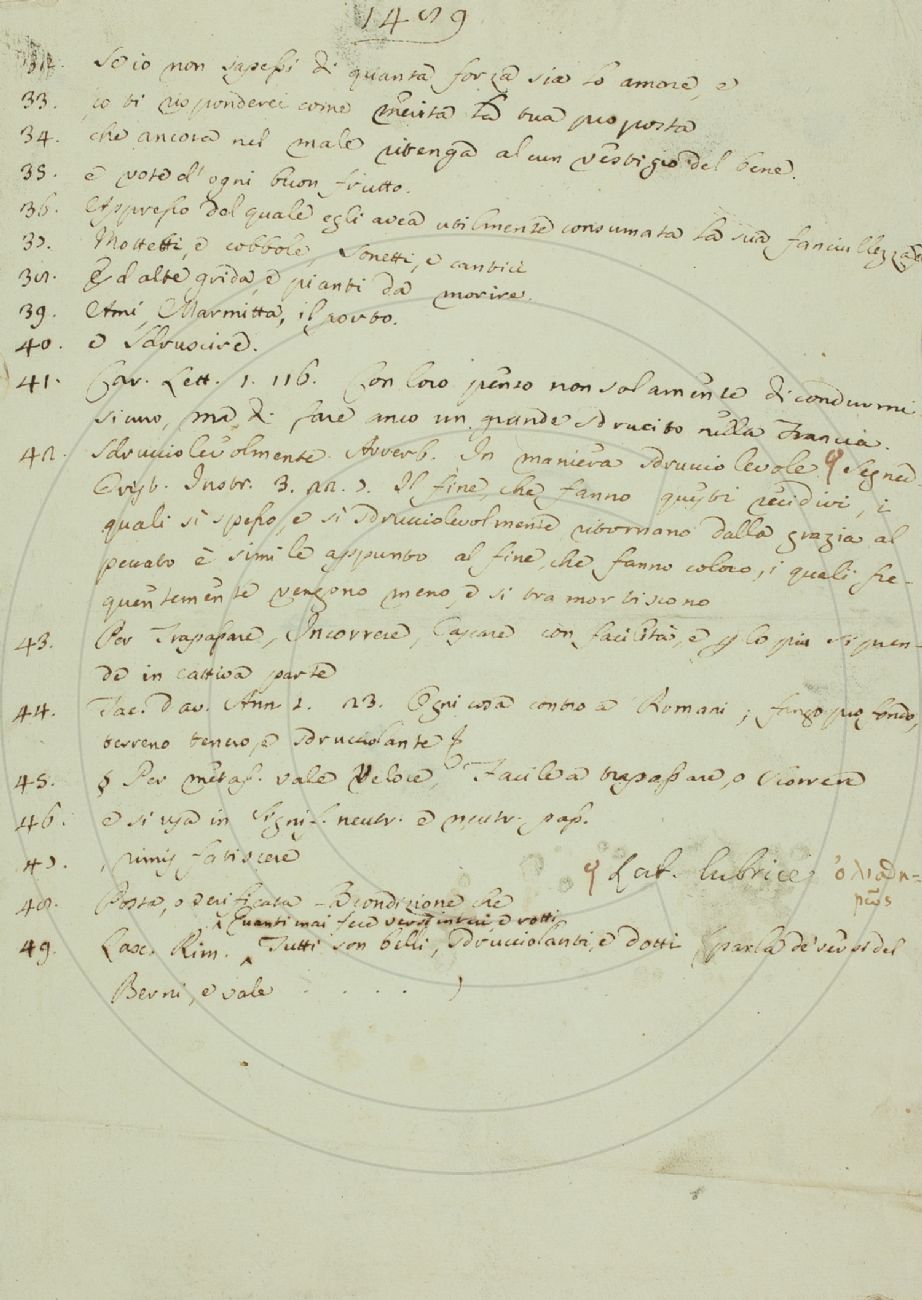 1489
32. Se io non sapessi di quanta forza sia lo amore, e
33. io ti risponderei come merita la tua proposta
34. che ancora nel male ritenga alcun vestigio del bene.
35. e voto d'ogni buon frutto.
36. Appresso dol quale egli avea utilmente consumata la sua fanciullezza
37. Mottetti, e cobbole, sonetti, e cantici
38. E d'alte grida, e pianti da morire.
39. Ami, Marmitta, il porto.
40. e Sdruscire.
41. Car. Lett. 1. 116. Con loro penso non solamente di condurmi
sicuro, ma di fare anco un grande sdrucito nella Francia.
42. Sdrucciolevolmente. Avverb. In maniera sdrucciolevole. Segner.
Crist. Instr. 3. 22. 7. Il fine, che fanno questi recidivi, i
quali sì spesso, e sì sdrucciolevolmente ritornano dalla grazia al
peccato è simile appunto al fine, che fanno coloro, i quali fre-
quentemente vengono meno, e si tramortiscono
43. Per Trapassare, Incorrere, Cascare con facilità, e p lo più si pren-
de in cattiva parte
44. Tac. Dav. Ann. 1. 23. Ogni cosa contro a' Romani; fango profondo,
terreno tenero, e sdrucciolante
45. § Per metaf. vale Veloce, Facile a trapassare, o Scorrere
46. e si usa in signif. neutr. e neutr. pass.
47. , rimis fatiscere
Lat. lubrice ὀλισθη-
ρῶς
48. Posta, o
condizione che
Quanti mai fece versi
e rotti
49. Lasc. Rim. Tutti son belli, sdrucciolanti, e dotti (parla de' versi del
Berni, e vale . . . . )